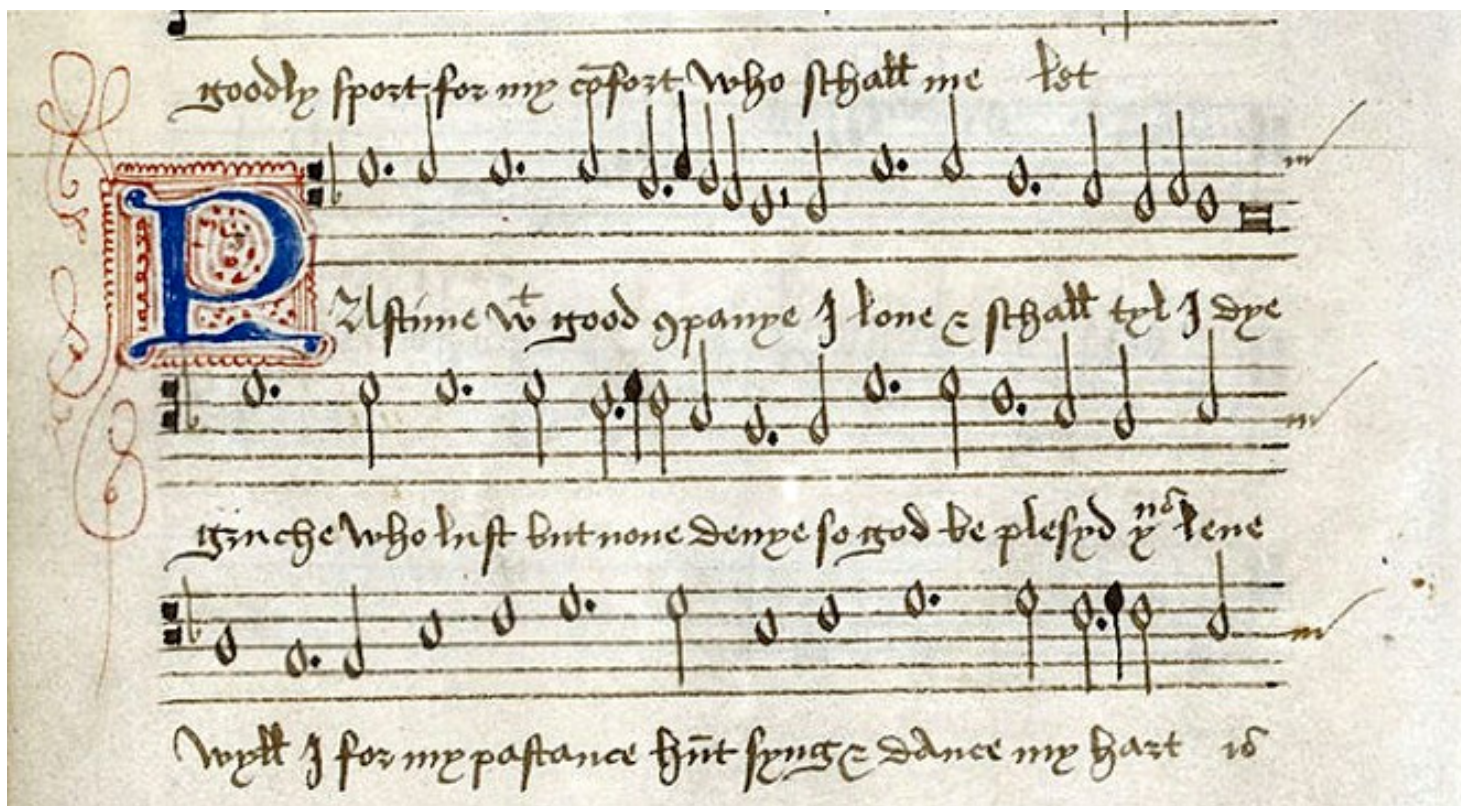 goodly sport for my cõfort who schall me let
PAstime wt good ꝯpanye I loue & schall tyl I dye
gruche who lust but none denye so god be plesyd yus leue
wyll I for my pastance hũt syng & dance my hart is